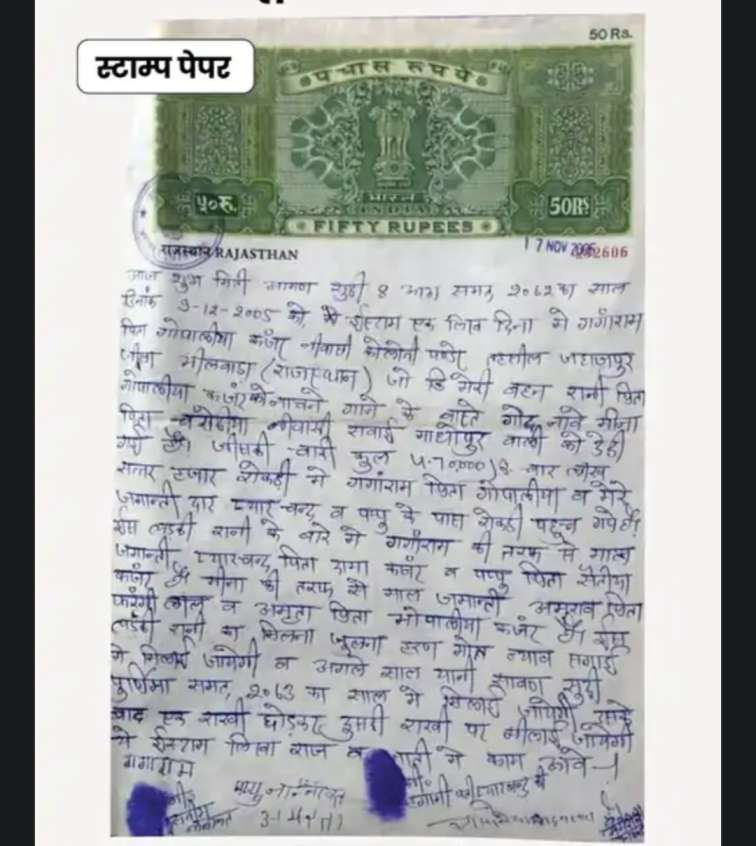 स्टाम्प पेपर
50 Rs.
पचास रुपये
भारत
INDIA
५०रु.
50RS
FIFTY RUPEES
राजस्थान RAJASTHAN
17 NOV 2005
आज शुभ मिती सुदी 8 समत 2062 का साल
दिनांक 9-12-2005 को, मे ईस्टाम एक लिख दिना मे गंगाराम
पिता गोपालीया कंजर नीवासी पण्डेर तहसील जहाजपुर
जीला भीलवाडा (राजास्थान) जो कि मेरी बहन रानी पिता
गोपालीया कंजर को नाचने गाने के वास्ते गोद नावे मीना
पिता नीवासी सवाई माधोपुर वाली को देदी
गयी है। जीसकी कुल 4.70,000) रु. चार लाख
सत्तर हजार रोकडी मे गंगाराम पिता गोपालीया व मेरे
जमानती दार प्यारचन्द व पप्पु के पास रोकडी पहुच गये है।
ईस लडकी रानी के बारे मे गंगाराम की तरफ से माल
जमानती प्यारचन्द पिता रामा कंजर व पप्पु पिता
कंजर है मीना की तरफ से माल जमानती अमराव पिता
लाल व अमृता पिता गोपालीया कंजर है। ईस
लडकी रानी का मिलना जुलना हरण मोत न्याव सगाई
मे मिलाई जायेगी व अगले साल यानी सावण सुदी
पुर्णिमा समत 2063 का साल मे मिलाई जायेगी इसके
बाद एक राखी छोडकर दुसरी राखी पर मीलाई जायेगी
मे ईस्टाम लिखा राज व जाती मे काम आवे।
गंगाराम